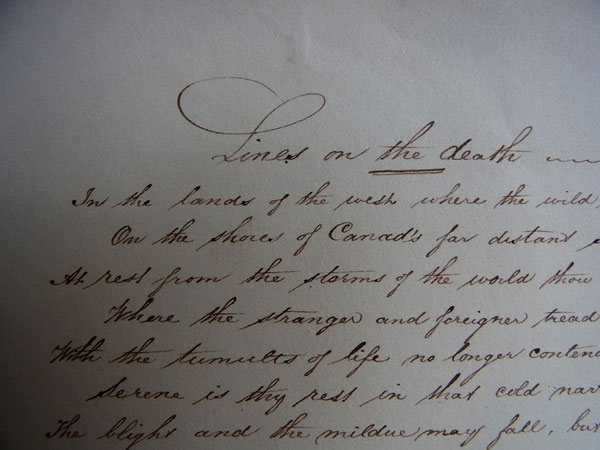 Lines on the death
In the lands of the west where the wild
On the shores of Canad's far distant
At rest from the storms of the world thou
Where the stranger and foreigner tread
With the tumults of life no longer conten
Serene is thy rest in that cold nar
The blight and the mildue may fall, but